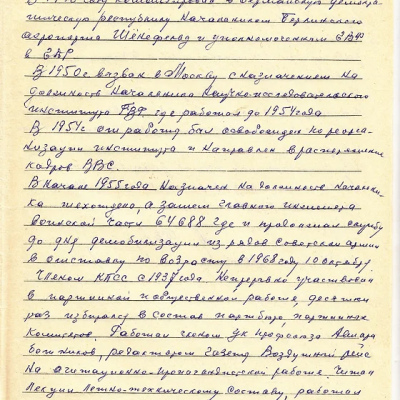 ническую республику Начальником Берлинского
аэропорта Шёнефельд и уполномоченным ГВФ
в ГДР
В 1950г вызван в Москву с назначением на
должность Начальника Научно-исследовательского
института ГВФ где работал до 1954 года
В 1954г от работы был освобожден по реорга-
низации института и направлен в распоряжение
кадров ВВС.
В начале 1955 года назначен на должность начальни-
ка техотдела, а затем главного инженера
воинской части 64688 где и проходил службу
до дня демобилизации из рядов Советской армии
в отставку по возрасту в 1968 году 10 октября.
Членом КПСС с 1937 года Непрерывно участвовал
в партийной и общественной работе, десятки
раз избирался в состав партбюро, партийных
комитетов. Работал членом ЦК профсоюза Авиара
ботников, редактором газеты Воздушный рейс
На агитационно-пропагандистской работе. Читал
лекции Летно-техническому составу, работал